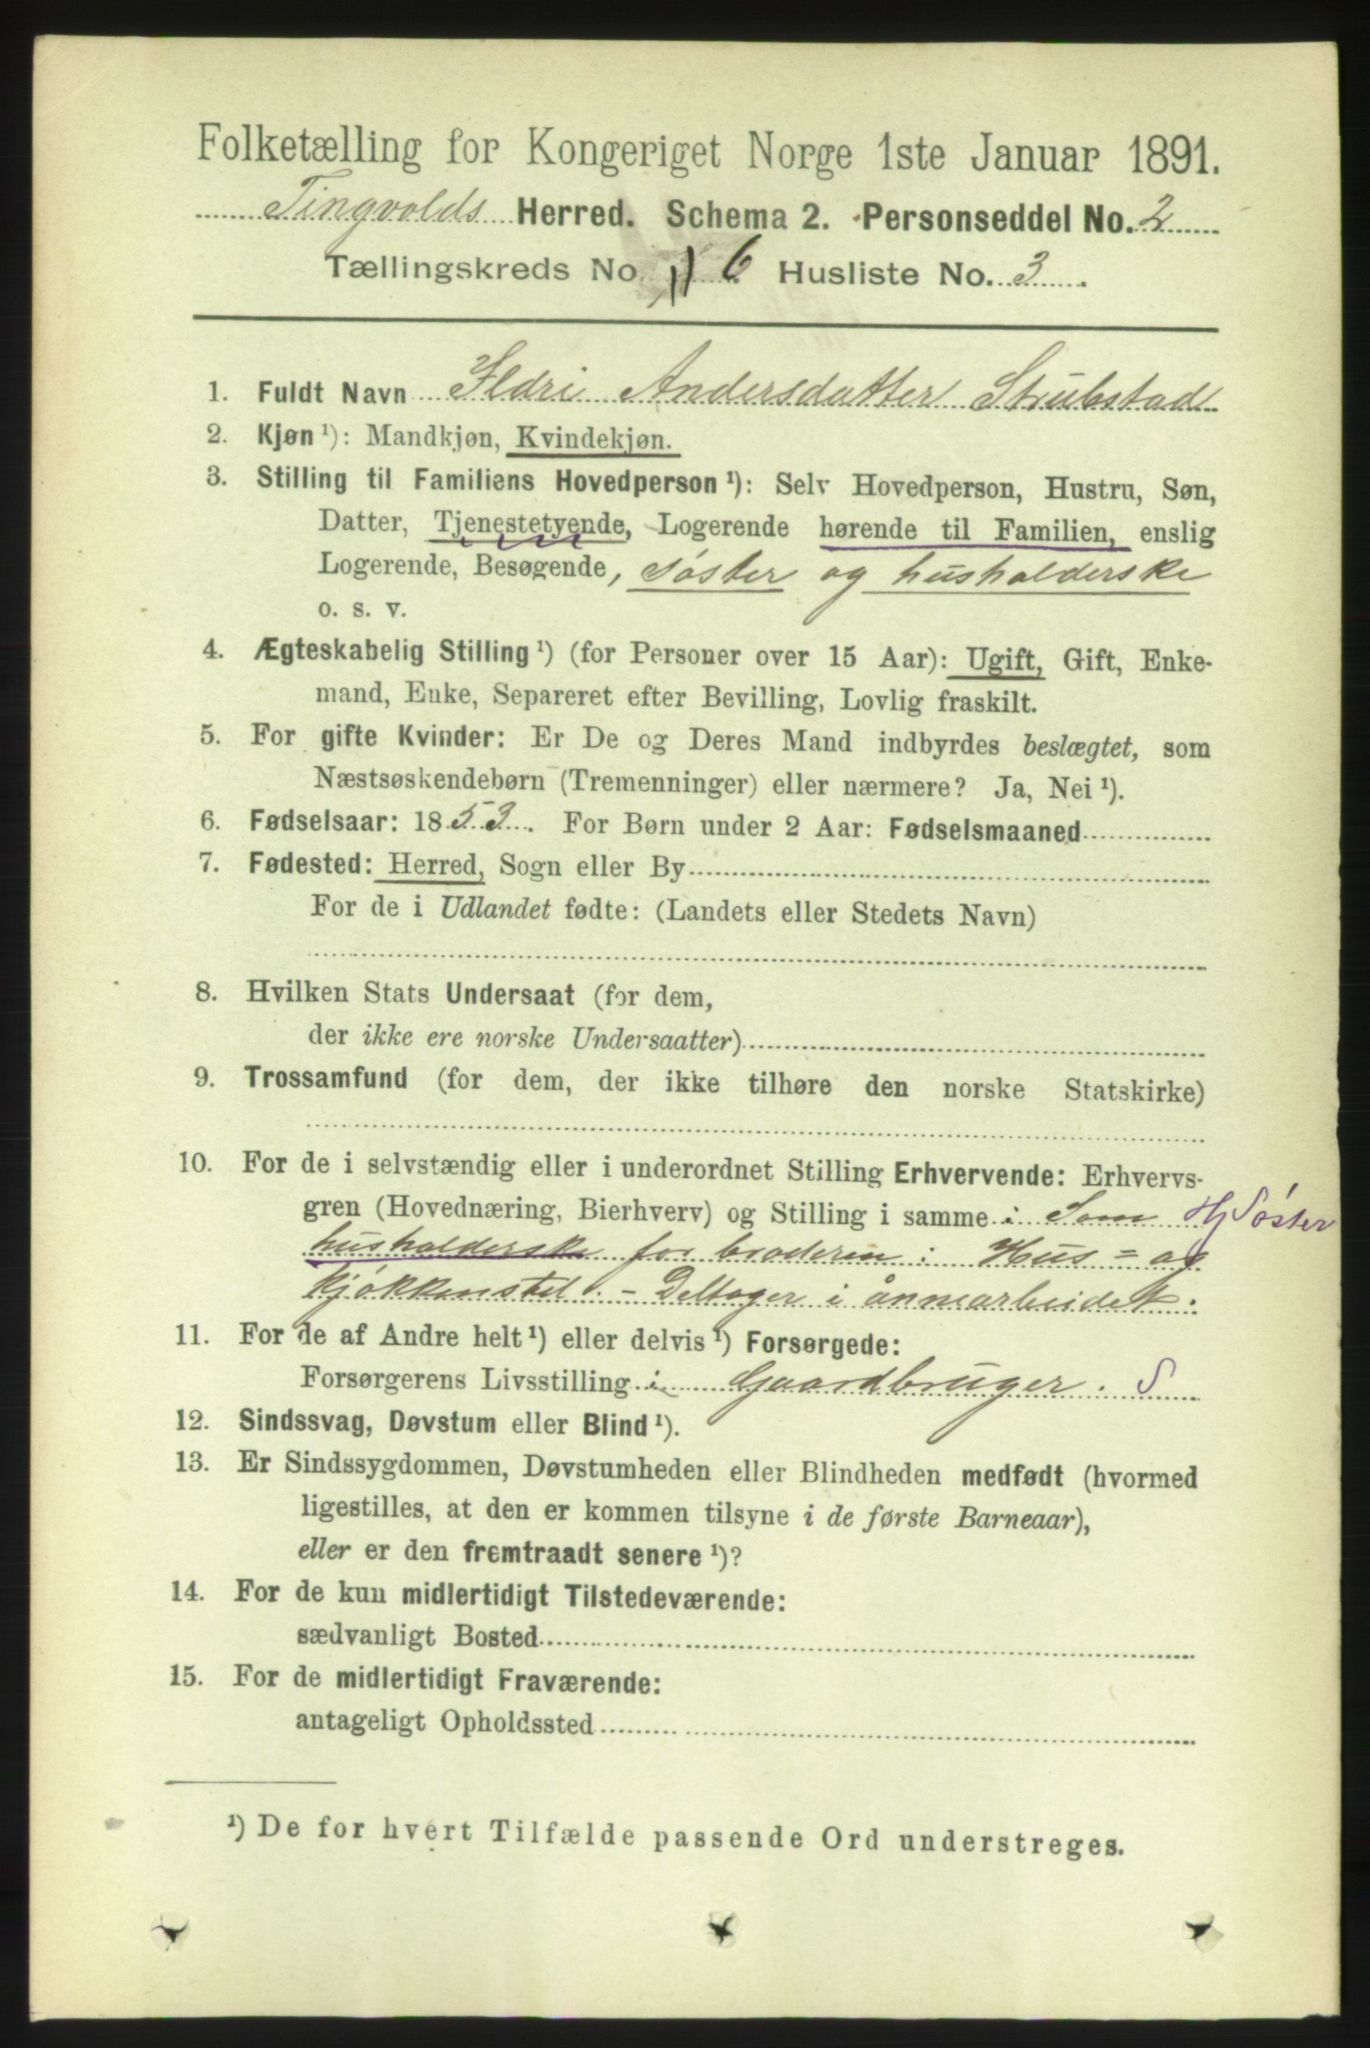 Folketælling for Kongeriget Norge 1ste Januar 1891.
Tingvolds Herred. Schema 2. Personseddel No. 2
Tællingskreds No. 6 Husliste No. 3
1. Fuldt Navn Ildri Andersdatter Strubstad
2. Kjøn ¹): Mandkjøn, Kvindekjøn.
3. Stilling til Familiens Hovedperson ¹): Selv Hovedperson, Hustru, Søn,
Datter, Tjenestetyende, Logerende hørende til Familien, enslig
Logerende, Besøgende, søster og husholderske
o. s. v.
4. Ægteskabelig Stilling ¹) (for Personer over 15 Aar): Ugift, Gift, Enke-
mand, Enke, Separeret efter Bevilling, Lovlig fraskilt.
5. For gifte Kvinder: Er De og Deres Mand indbyrdes beslægtet, som
Næstsøskendebørn (Tremenninger) eller nærmere? Ja, Nei ¹).
6. Fødselsaar: 1853. For Børn under 2 Aar: Fødselsmaaned
7. Fødested: Herred, Sogn eller By
For de i Udlandet fødte: (Landets eller Stedets Navn)
8. Hvilken Stats Undersaat (for dem,
der ikke ere norske Undersaatter)
9. Trossamfund (for dem, der ikke tilhøre den norske Statskirke)
10. For de i selvstændig eller i underordnet Stilling Erhvervende: Erhvervs-
gren (Hovednæring, Bierhverv) og Stilling i samme : Som Hj Søster
husholderske for broderen : Hus = og
kjøkkenstel. - Deltager i ånnearbeidet.
11. For de af Andre helt ¹) eller delvis ¹) Forsørgede:
Forsørgerens Livsstilling : Gaardbruger. S
12. Sindssvag, Døvstum eller Blind ¹).
13. Er Sindssygdommen, Døvstumheden eller Blindheden medfødt (hvormed
ligestilles, at den er kommen tilsyne i de første Barneaar),
eller er den fremtraadt senere ¹)?
14. For de kun midlertidigt Tilstedeværende:
sædvanligt Bosted
15. For de midlertidigt Fraværende:
antageligt Opholdssted
¹) De for hvert Tilfælde passende Ord understreges.